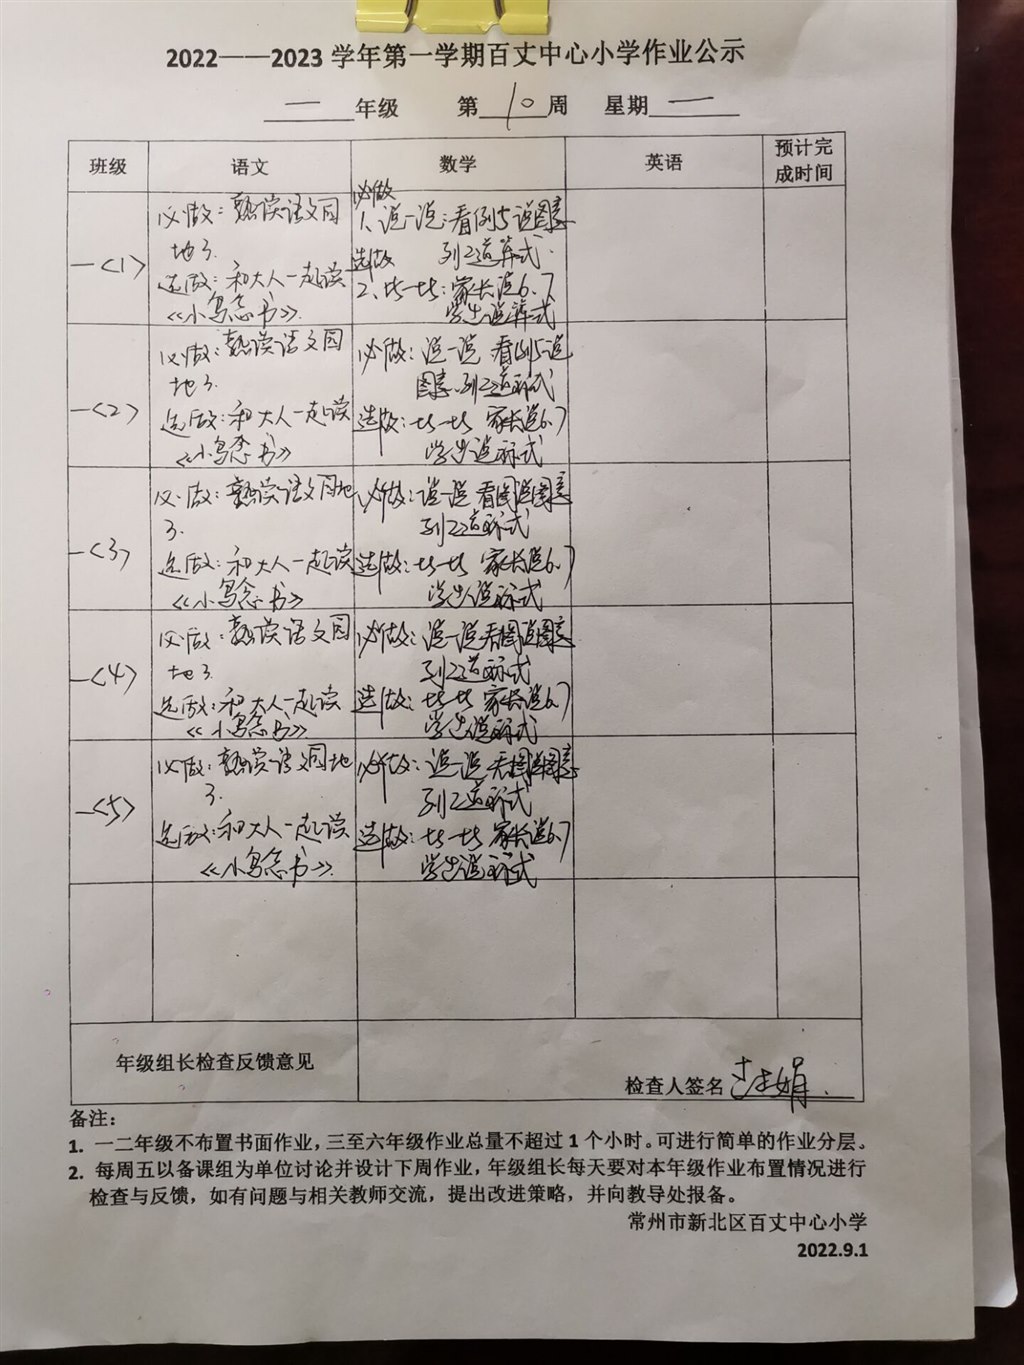 2022——2023 学年第一学期百丈中心小学作业公示
一 年级 第 10 周 星期 一
班级 语文 数学 英语 预计完成时间
一<1>
必做：熟读语文园
地3.
选做：和大人一起读
《小鸟念书》.
必做
1、说一说：看例5说图意
列2道算式.
选做
2、比一比：家长说6、7
学生说算式
一<2>
必做：熟读语文园
地3.
选做：和大人一起读
《小鸟念书》
必做：说一说 看例5说
图意.列2道算式
选做：比一比 家长说6.7
学生说算式
一<3>
必做：熟读语文园地
3.
选做：和大人一起读
《小鸟念书》
必做：说一说 看图说图意
列2道算式
选做：比一比 家长说6.7
学生说算式
一<4>
必做：熟读语文园
地3.
选做：和大人一起读
《小鸟念书》
必做：说一说看图说图意
列2道算式
选做：比一比 家长说6.7
学生说算式
一<5>
必做：熟读语文园地
3.
选做：和大人一起读
《小鸟念书》.
必做：说一说看图说图意
列2道算式
选做：比一比 家长说6.7
学生说算式
年级组长检查反馈意见
检查人签名
备注：
1. 一二年级不布置书面作业，三至六年级作业总量不超过 1 个小时。可进行简单的作业分层。
2. 每周五以备课组为单位讨论并设计下周作业，年级组长每天要对本年级作业布置情况进行
检查与反馈，如有问题与相关教师交流，提出改进策略，并向教导处报备。
常州市新北区百丈中心小学
2022.9.1